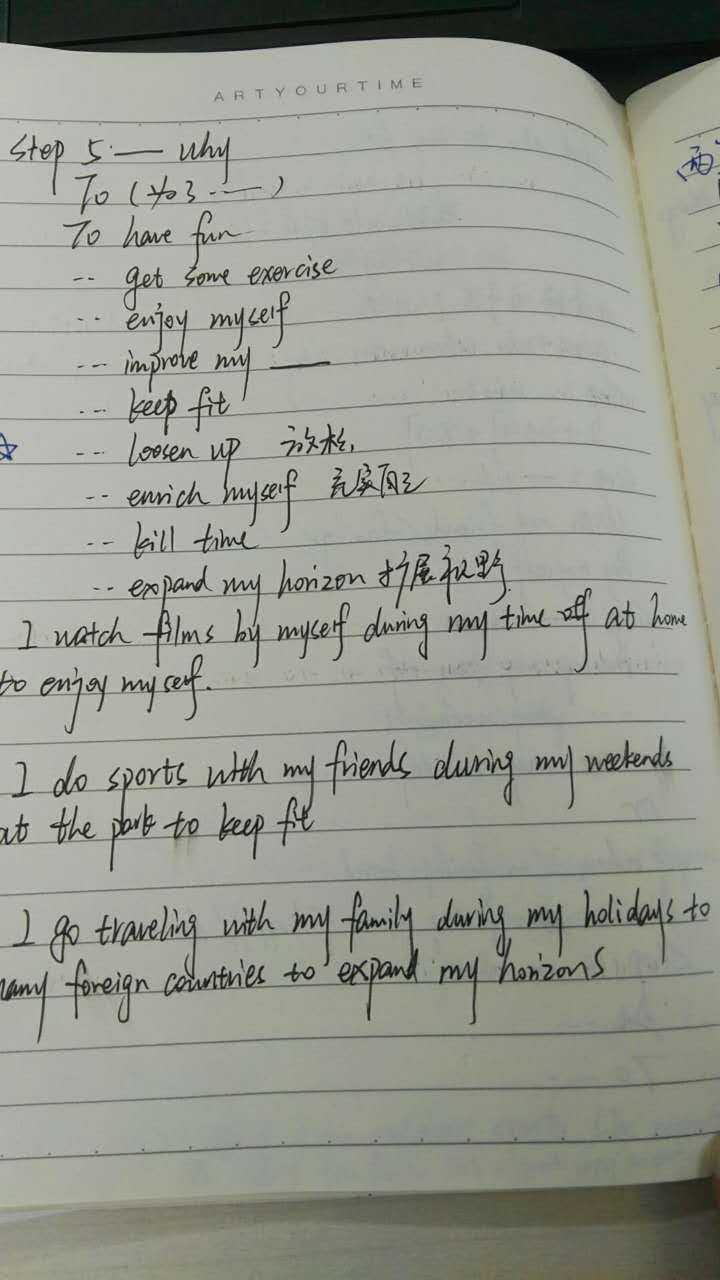 ARTYOURTIME
Step 5 — why
To (为了 ——)
To have fun
-- get some exercise
-- enjoy myself
--- improve my ——
-- keep fit
☆ -- loosen up 放松
-- enrich myself 充实自己
-- kill time
-- expand my horizon 扩展视野
I watch films by myself during my time off at home
to enjoy myself.
I do sports with my friends during my weekends
at the park to keep fit
I go traveling with my family during my holidays to
many foreign countries to expand my horizons